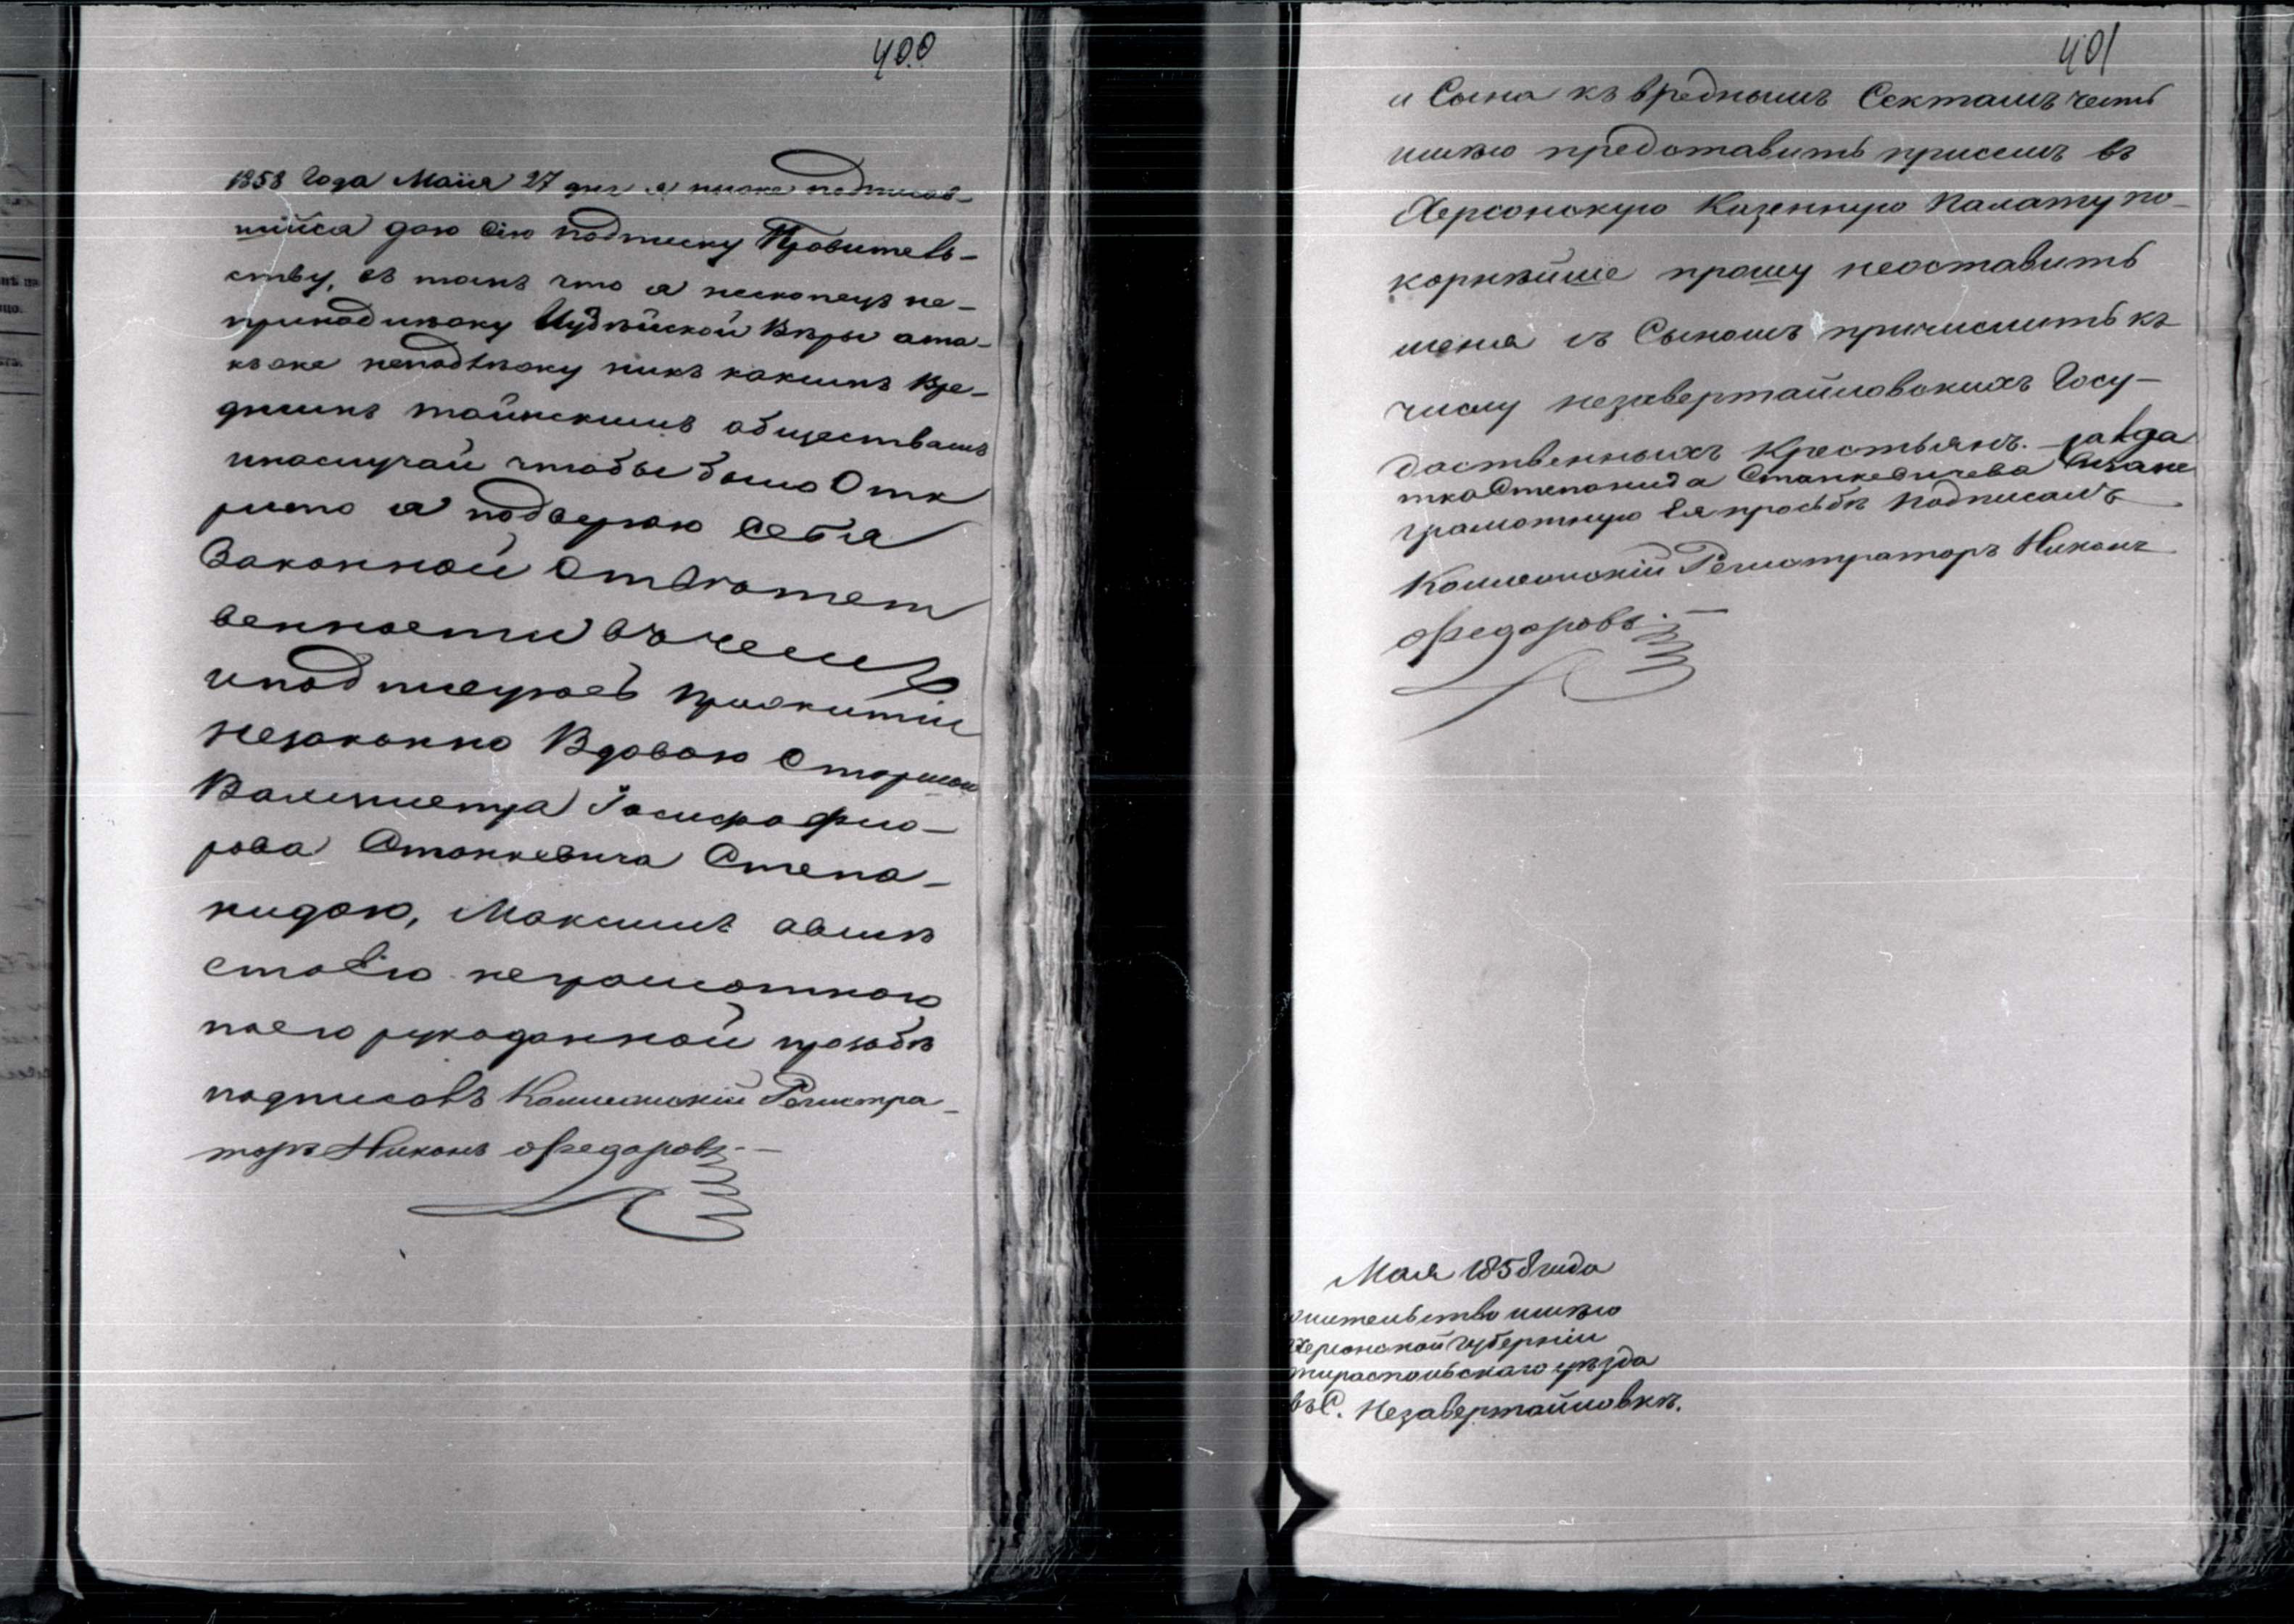 400
1858 Года Маiя 27 дня я ниже подписав-
шийся даю Сiю подписку Провитель-
ству, въ томъ что я нескопецъ не-
принадлѣжу Иудѣйской Вѣры ата-
кже неподлѣжу никъ какимъ Вре-
днимъ тайнскимъ обществамъ
инаслучай чтобы было Отк
рито я подвергаю Себя
Законной Ответстен
венности вчемъ
иподписуюсь Прижитiи
незаконно Вдовою Старшаго
Вахмистра Iосифа Фло-
рова Станкевича Степа-
нидою, Максимъ авмѣ
сто Ею неграмотною
поею рукоданной прозьбѣ
подписовъ Коллежскiй Регистра-
торъ Никонъ Федоровъ.-
401
и Сына къ вреднымъ Сектамъ честь
имѣю предоставить присемъ въ
Херсонскую Казенную Палату по-
корнѣйше прошу неоставить
меня съ Сыномъ причислить къ
числу незавертайловскихъ Госу-
дарственныхъ Крестьянъ. -
Степанида Станкевичева
грамотную Ея прозьбѣ подписалъ
Коллежскiй Регистраторъ Никонъ
Федоровъ.-
Мая 1858 года
жительство имѣю
Херсонской Губернiи
тираспольскаго уѣзда
въ С. Незавертайловкѣ.